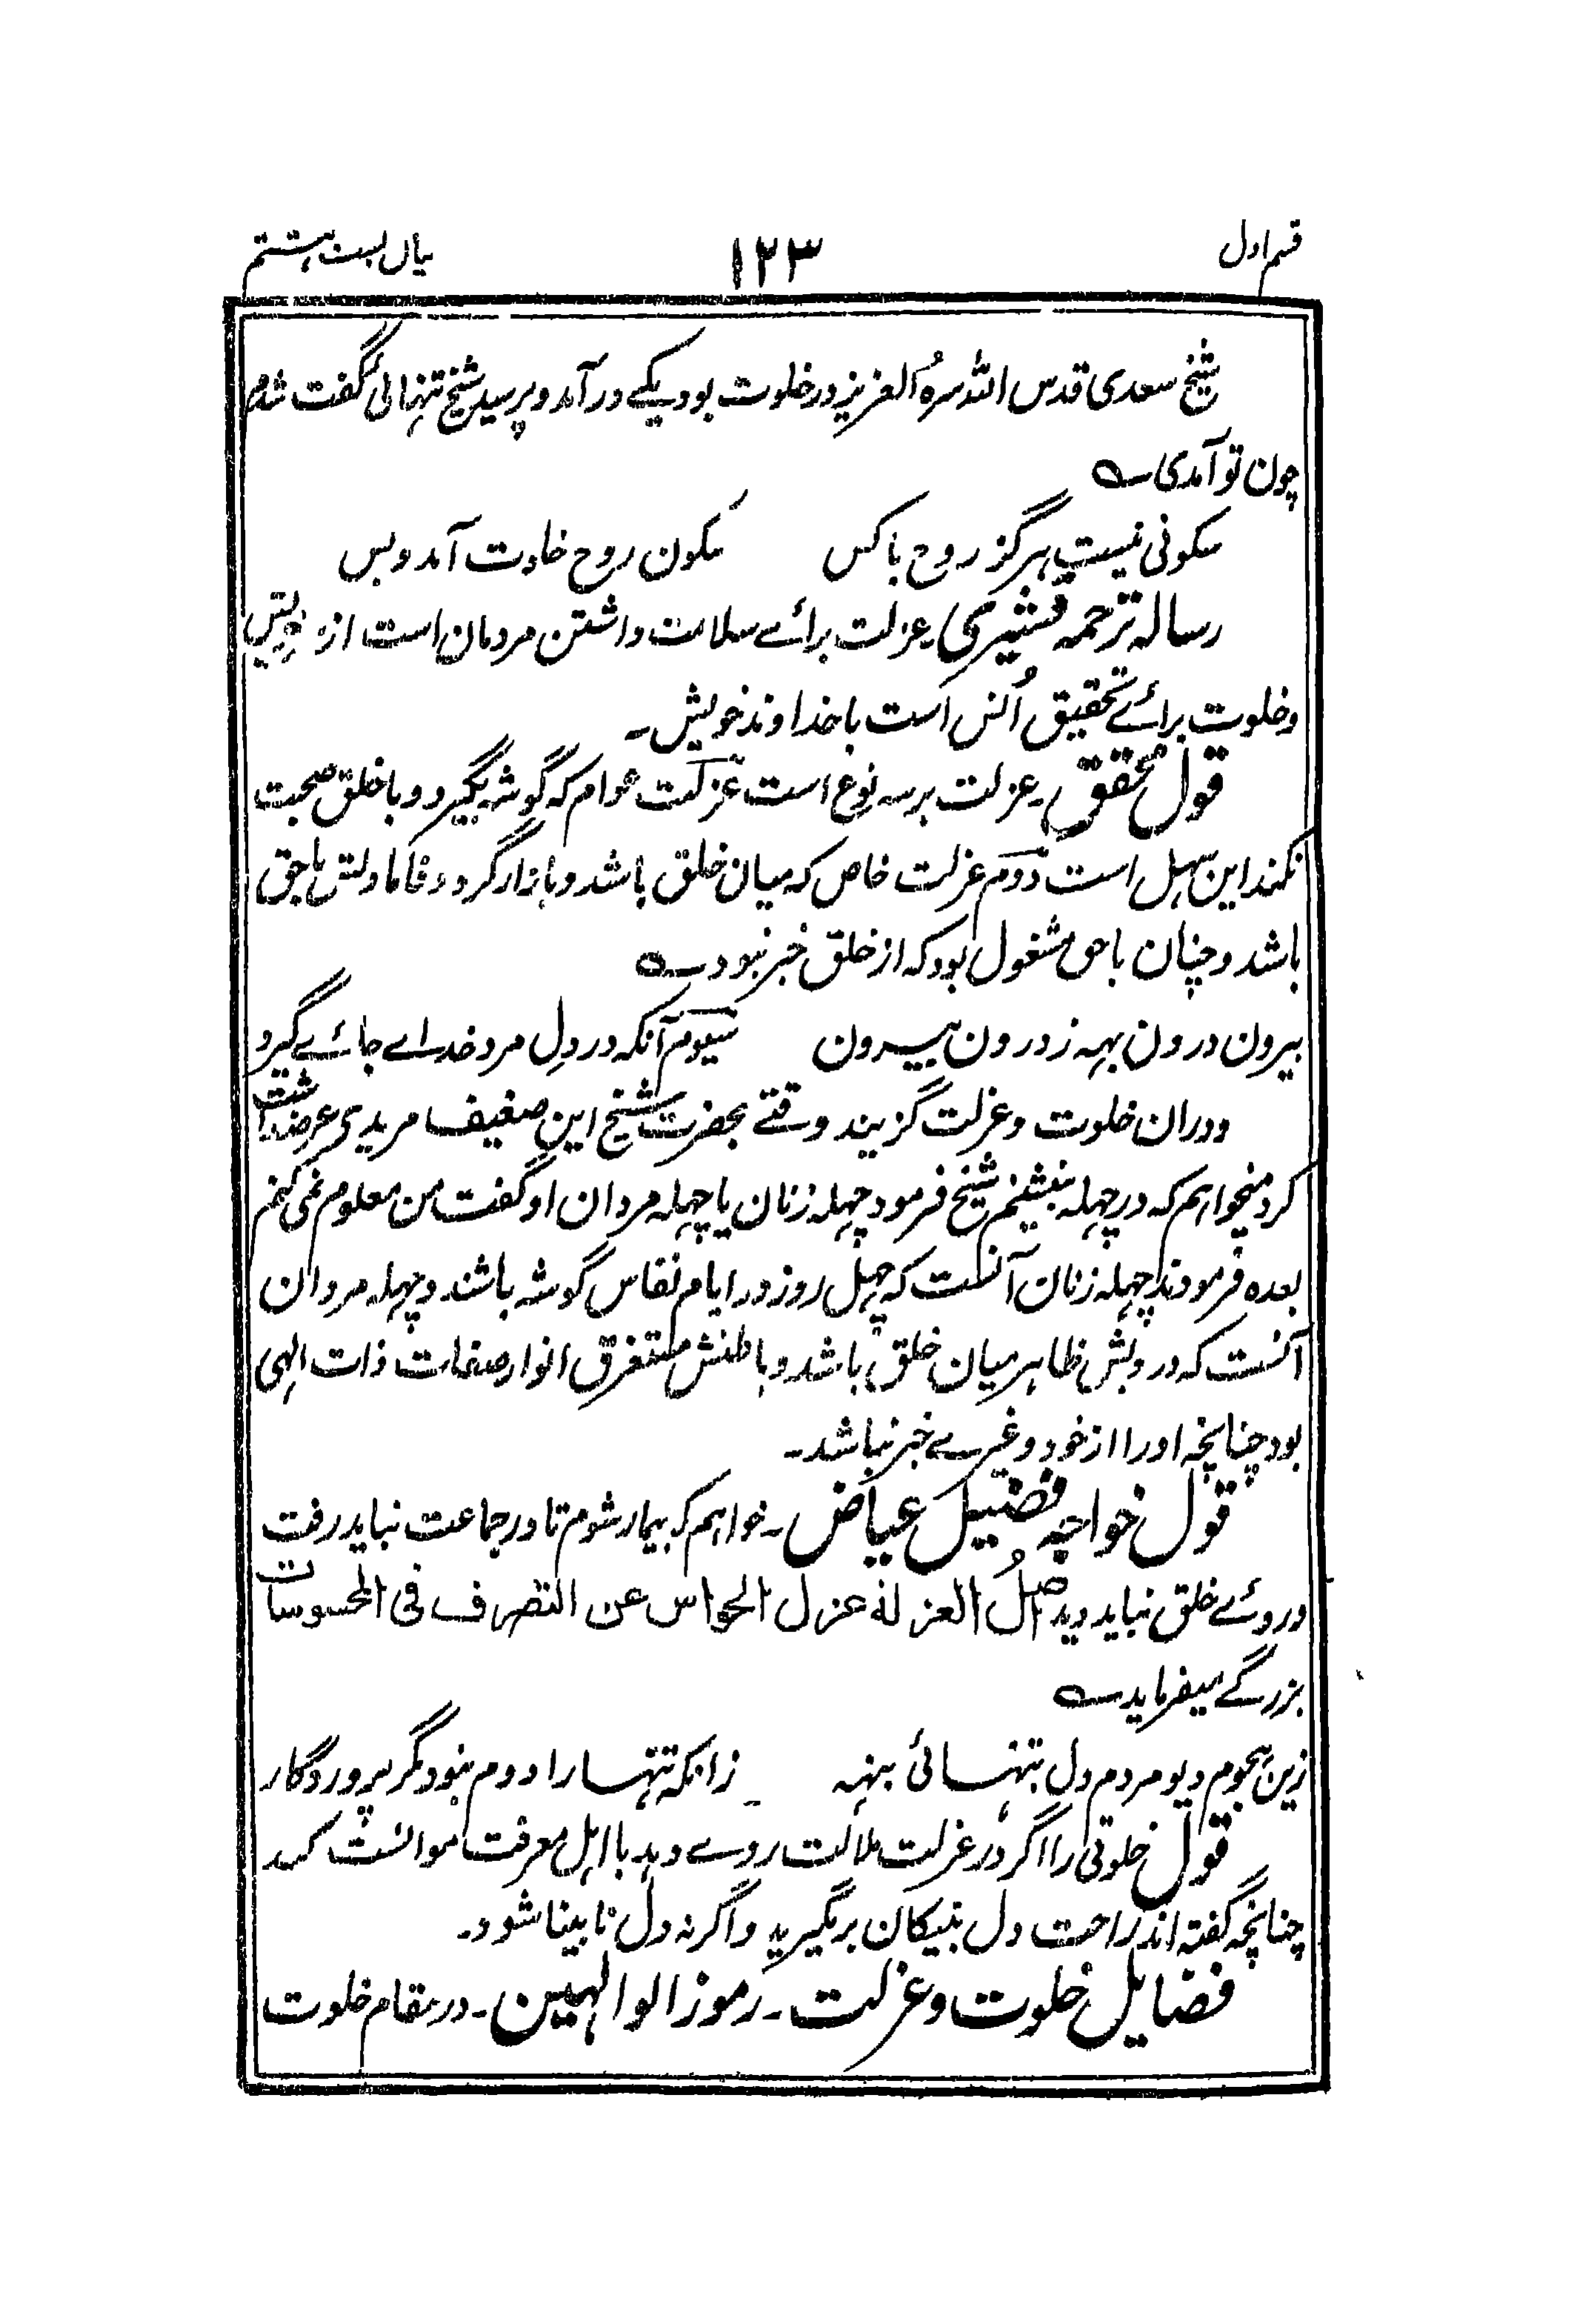 قسم اول
۱۲۳
بیان بست ہشتم
شیخ سعدی قدس اللہ سرہُ العزیز در خلوت بود یکے درآمد و پرسید شیخ تنہائی گفت شدم
چون تو آمدی ؎
سکونی نیست ہرگز روح باکس
سکون روح خلوت آمد و بس
رسالہ ترجمہ قشیری۔ عزلت برائے سلامت داشتن مردمان است از
وخلوت برائے تحقیق اُنس است با خداوند خویش۔
قول محقق۔ عزلت بر سہ نوع است عزلت عوام کہ گوشہ بگیرد و با خلق صحبت
نکند این سہل است دوم عزلت خاص کہ میان خلق باشد و بازار گردد فاما دلش باحق
باشد و چنان باحق مشغول بود کہ از خلق خبر نبود ؎
بیرون درون ہمہ ز درون بیرون
سیوم آنکہ در دلِ مرد خدا جائے گیرد
ودران خلوت و عزلت گزیند وقتے بحضرت شیخ این ضعیف مریدی عرضداشت
کرد میخواہم کہ در چہلہ بنشینم شیخ فرمود چہلہ زنان یا چہلہ مردان او گفت من معلوم نمی کنم
بعدہ فرمودند چہلہ زنان آنست کہ چہل روز در ایام نفاس گوشہ باشند و چہلہ مردان
آنست کہ درویش ظاہر میان خلق باشد و باطنش مستغرق انوار صفات ذات الٰہی
بود چنانچہ اورا از خود و غیرے خبر نباشد۔
قول خواجہ فضیل عیاض۔ خواہم کہ بیمار شوم تا در جماعت نباید رفت
وروئے خلق نباید دید اصلُ العزلۃ عزل الحواس عن التصرف فی المحسوسات
بزرگے میفرماید ؎
زین ہجوم دیو مردم دل بتنہائی بنہ
زانکہ تنہا را دوم نبود مگر پروردگار
قول خلوتی را اگر در عزلت ملالت روے دہد با اہل معرفت موانست کند
چنانچہ گفتہ اند راحت دل بنیکان برگیرید و اگر نہ دل نابینا شود۔
فضایل خلوت و عزلت۔ رموز الوالہین۔ در مقام خلوت